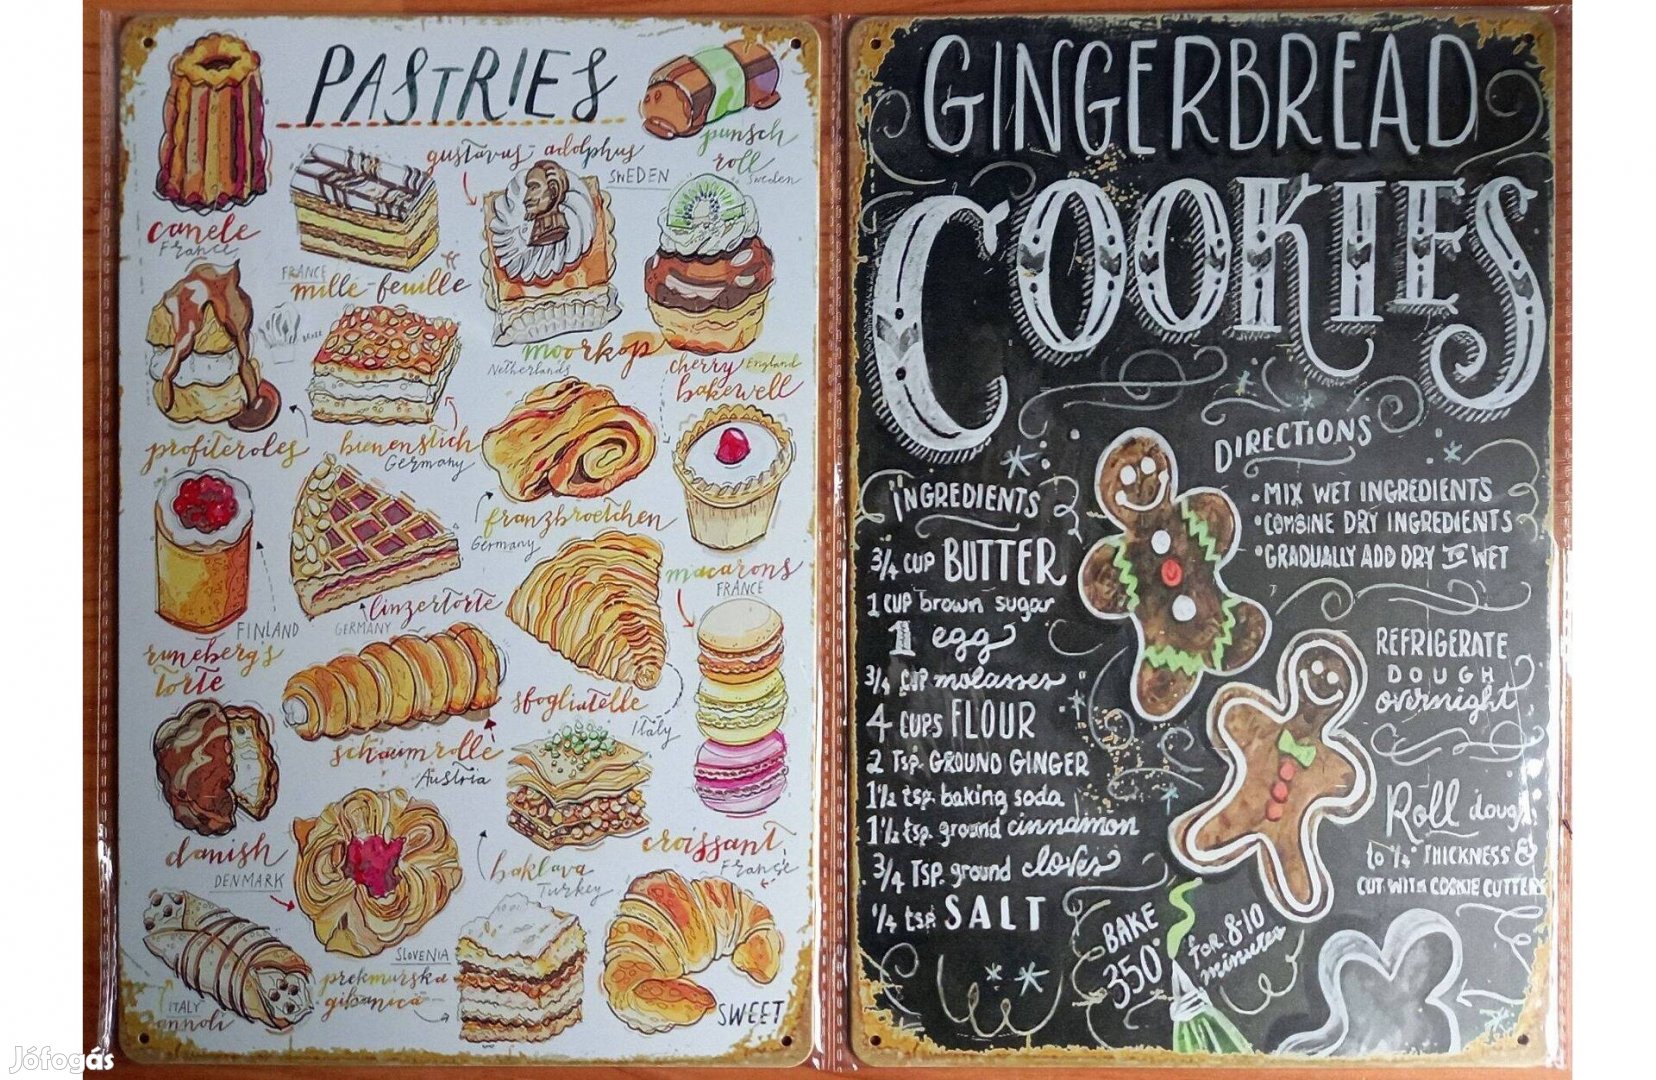 PASTRIES
punsch
roll
Sweden
gustavus-adolphus
SWEDEN
canele
France
FRANCE
mille-feuille
moorkop
Netherlands
cherry England
bakewell
profiteroles
bienenstich
Germany
franzbroetchen
Germany
macarons
FRANCE
linzertorte
GERMANY
FINLAND
runeberg's
torte
sfogliatelle
Italy
schaumrolle
Austria
danish
DENMARK
baklava
Turkey
croissant
France
SLOVENIA
prekmurska
gibanica
ITALY
annoli
SWEET
GINGERBREAD
COOKIES
INGREDIENTS
3/4 CUP BUTTER
1 CUP brown sugar
1 egg
3/4 CUP molasses
4 CUPS FLOUR
2 Tsp. GROUND GINGER
1 1/2 tsp. baking soda
1 1/2 tsp. ground cinnamon
3/4 Tsp. ground cloves
1/4 tsp. SALT
DIRECTIONS
• MIX WET INGREDIENTS
• COMBINE DRY INGREDIENTS
• GRADUALLY ADD DRY TO WET
REFRIGERATE
DOUGH
overnight
Roll dough
to 1/4" THICKNESS &
CUT WITH COOKIE CUTTERS
BAKE
350°
FOR 8-10
minutes
Jófogás